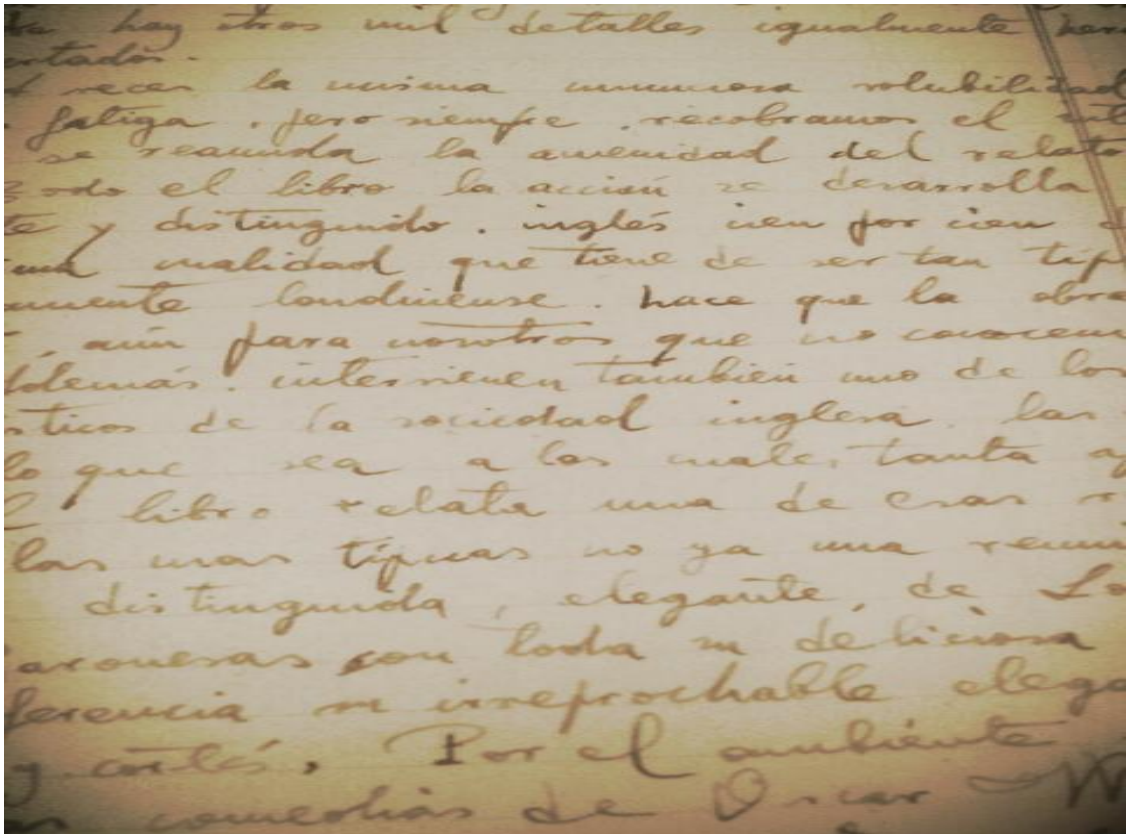 hay otros mil detalles igualmente
veces la misma numerosa volubilidad
fatiga, pero siempre, recobramos el
se reanuda la amenidad del relato
Todo el libro la acción se desarrolla
y distinguido, inglés cien por cien
cualidad que tiene de ser tan
londinense, hace que la obra
, aún para nosotros que no conocem
Además, intervienen también uno de los
sticos de la sociedad inglesa, las
lo que sea a las cuales tanta
libro relata una de esas
las mas típicas no ya una reuni
distinguida, elegante, de Lo
aronesas con toda su deliciosa
ferencia su irreprochable elega
y cortés. Por el ambiente
comedias de Oscar W